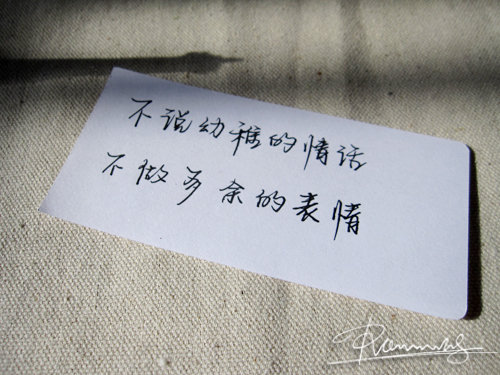 不说幼稚的情话
不做多余的表情